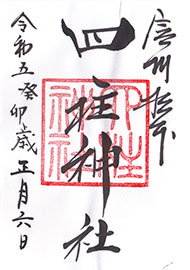 信州松本
四柱神社
令和五癸卯歳正月六日